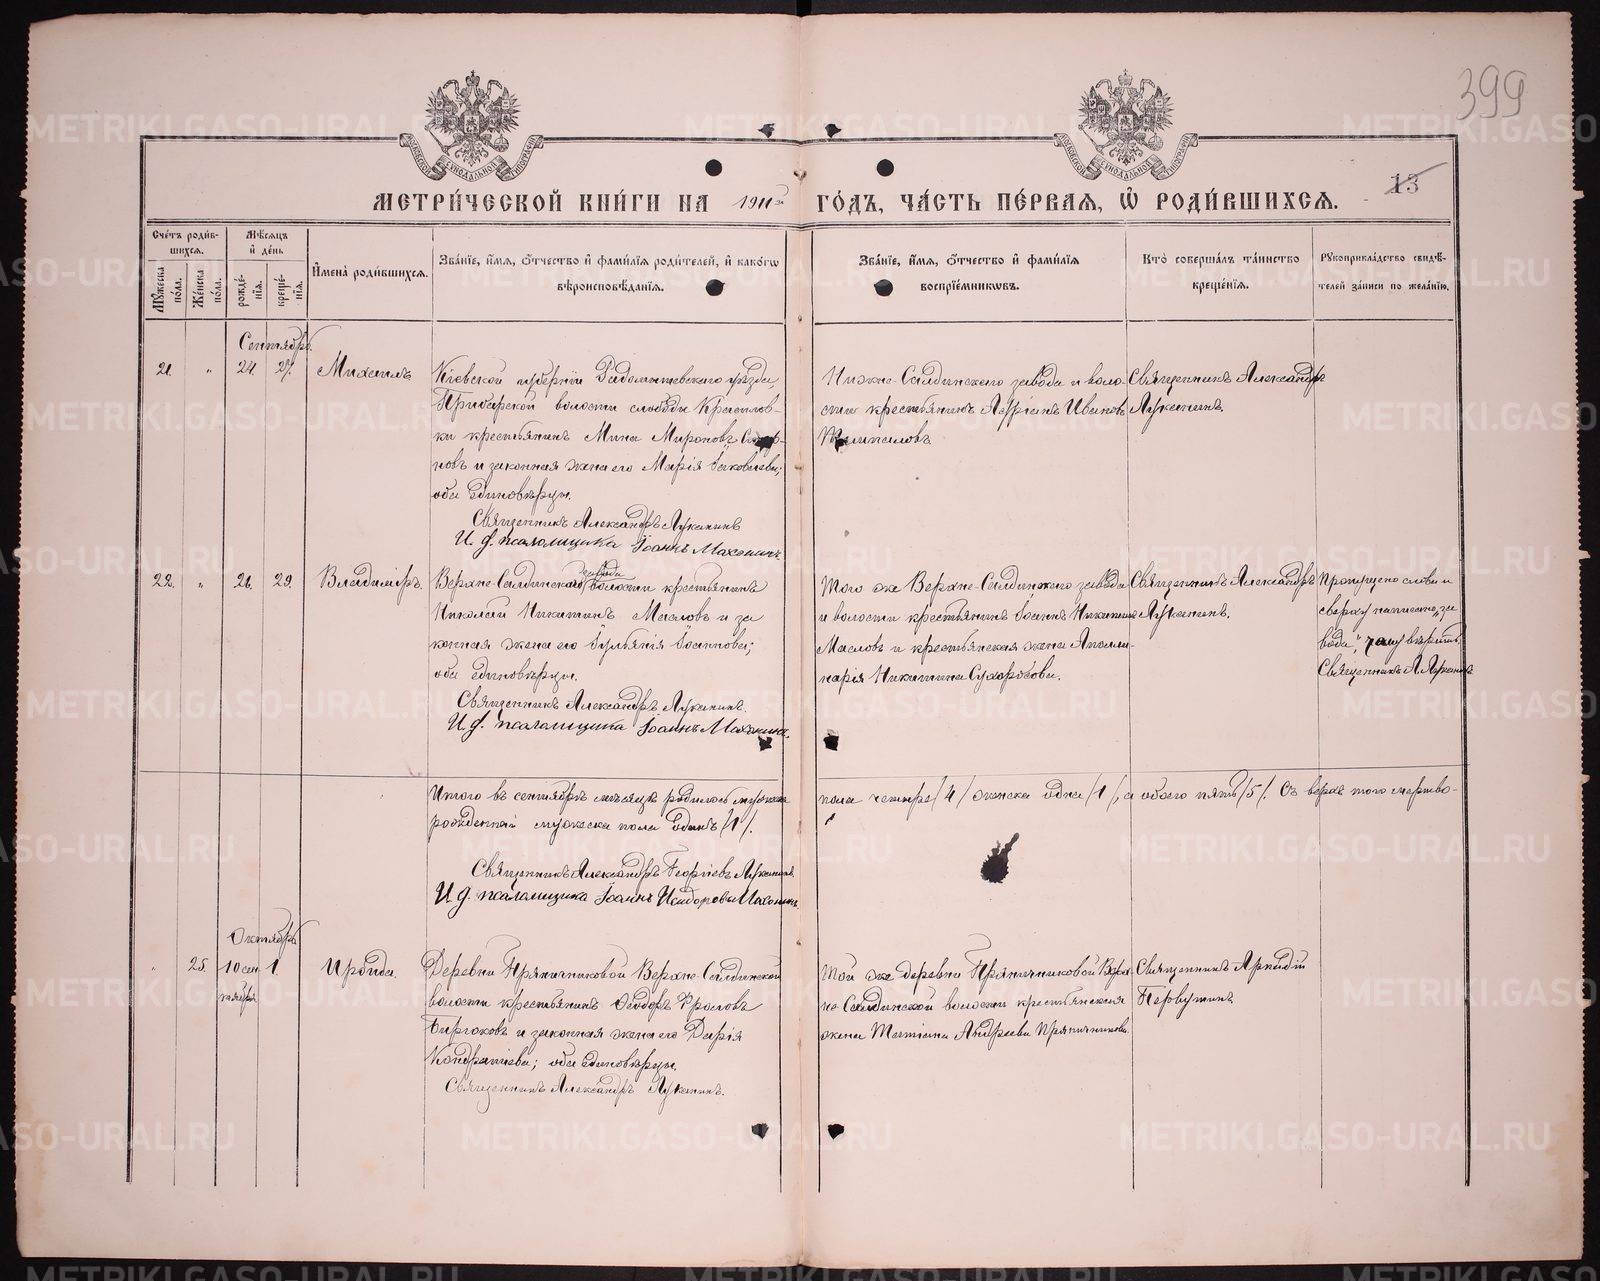 399
13
МЕТРИ́ЧЕСКОЙ КНИ́ГИ НА 1911й ГО́ДЪ, ЧА́СТЬ ПЕ́РВАЯ, Ѽ РОДИ́ВШИХСЯ.
Сче́тъ роди́в-
шихся.
Мѣ́сяцъ
и҆ де́нь
Мꙋ́жеска по́ла.
Же́нска по́ла.
рожде́-
нїѧ.
креще́-
нїѧ.
И҆мена̀ роди́вшихся.
Зва́нїе, и҆́мѧ, ѻ҆́тчество и҆ фамѝлїѧ роди́телей, и҆ како́гѡ
вѣроисповѣ́данїѧ.
Зва́нїе, и҆́мѧ, ѻ҆́тчество и҆ фамѝлїѧ
воспрїе́мникѡвъ.
Кто̀ соверша́лъ та́инство
креще́нїѧ.
Рꙋкоприкла́дство свидѣ́-
телей за́писи по жела́нїю.
Сентябрь
21. " 24. 27. Михаилъ
Кіевской губерніи уѣзда,
волости слободы
ки крестьянинъ Мина Мироновъ
новъ и законная жена его Марія Іаковлева;
оба единовѣрцы.
Священникъ Александръ Луканинъ
И. д. псаломщика Іоаннъ Махонинъ
Нижне-Салдинскаго завода и воло-
сти крестьянинъ Ивановъ
Священникъ Александръ
Луканинъ.
22. " 28. 29. Владиміръ.
Верхне-Салдинскаго завода волости крестьянинъ
Николай Никитинъ Масловъ и за
конная жена его Іульянія Іоаннова;
оба единовѣрцы.
Священникъ Александръ Луканинъ.
И. д. псаломщика Іоаннъ Махонинъ.
Того же Верхне-Салдинскаго завода
и волости крестьянинъ Іоаннъ Никитинъ
Масловъ и крестьянская жена Аполли-
нарія Никитина Сухоросова.
Священникъ Александръ
Луканинъ.
Пропущено слово и
сверху написано „за
вода", чему вѣрить.
Священникъ А. Луканинъ
Итого въ сентябрѣ мѣсяцѣ родилось мужеска пола четыре /4/ женска одна /1/, а обоего пять /5/. Съ верхъ того мертво-
рожденный мужеска пола одинъ /1/.
Священникъ Александръ Георгіевъ Луканинъ
И. д. псаломщика Іоаннъ Исидоровъ Махонинъ
Октябрь
" 25. 10 сен 1. Ироида.
тября
Деревни Пряничниковой Верхне-Салдинской
волости крестьянинъ Ѳеодоръ Фроловъ
и законная жена его Дарія
Кондратіева; оба единовѣрцы.
Священникъ Александръ Луканинъ.
Той же деревни Пряничниковой Верх-
не-Салдинской волости крестьянская
жена Татіана Андреева Пряничникова.
Священникъ Аркадій
Первушинъ
METRIKI.GASO-URAL.RU